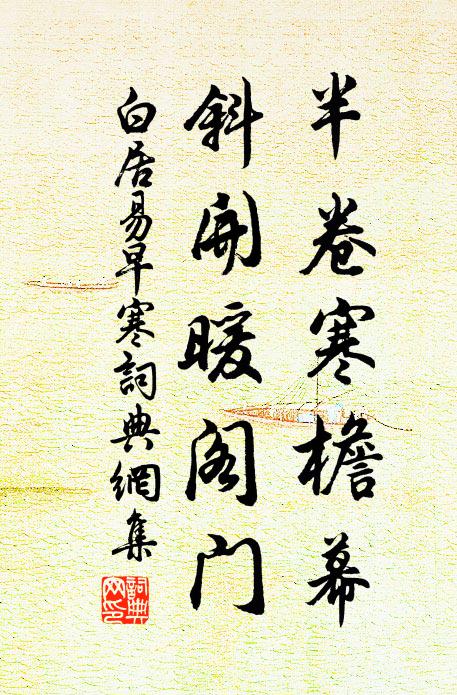 半卷寒檐幕
斜開暖閣門
白居易早寒詞典網集
詞典
网印